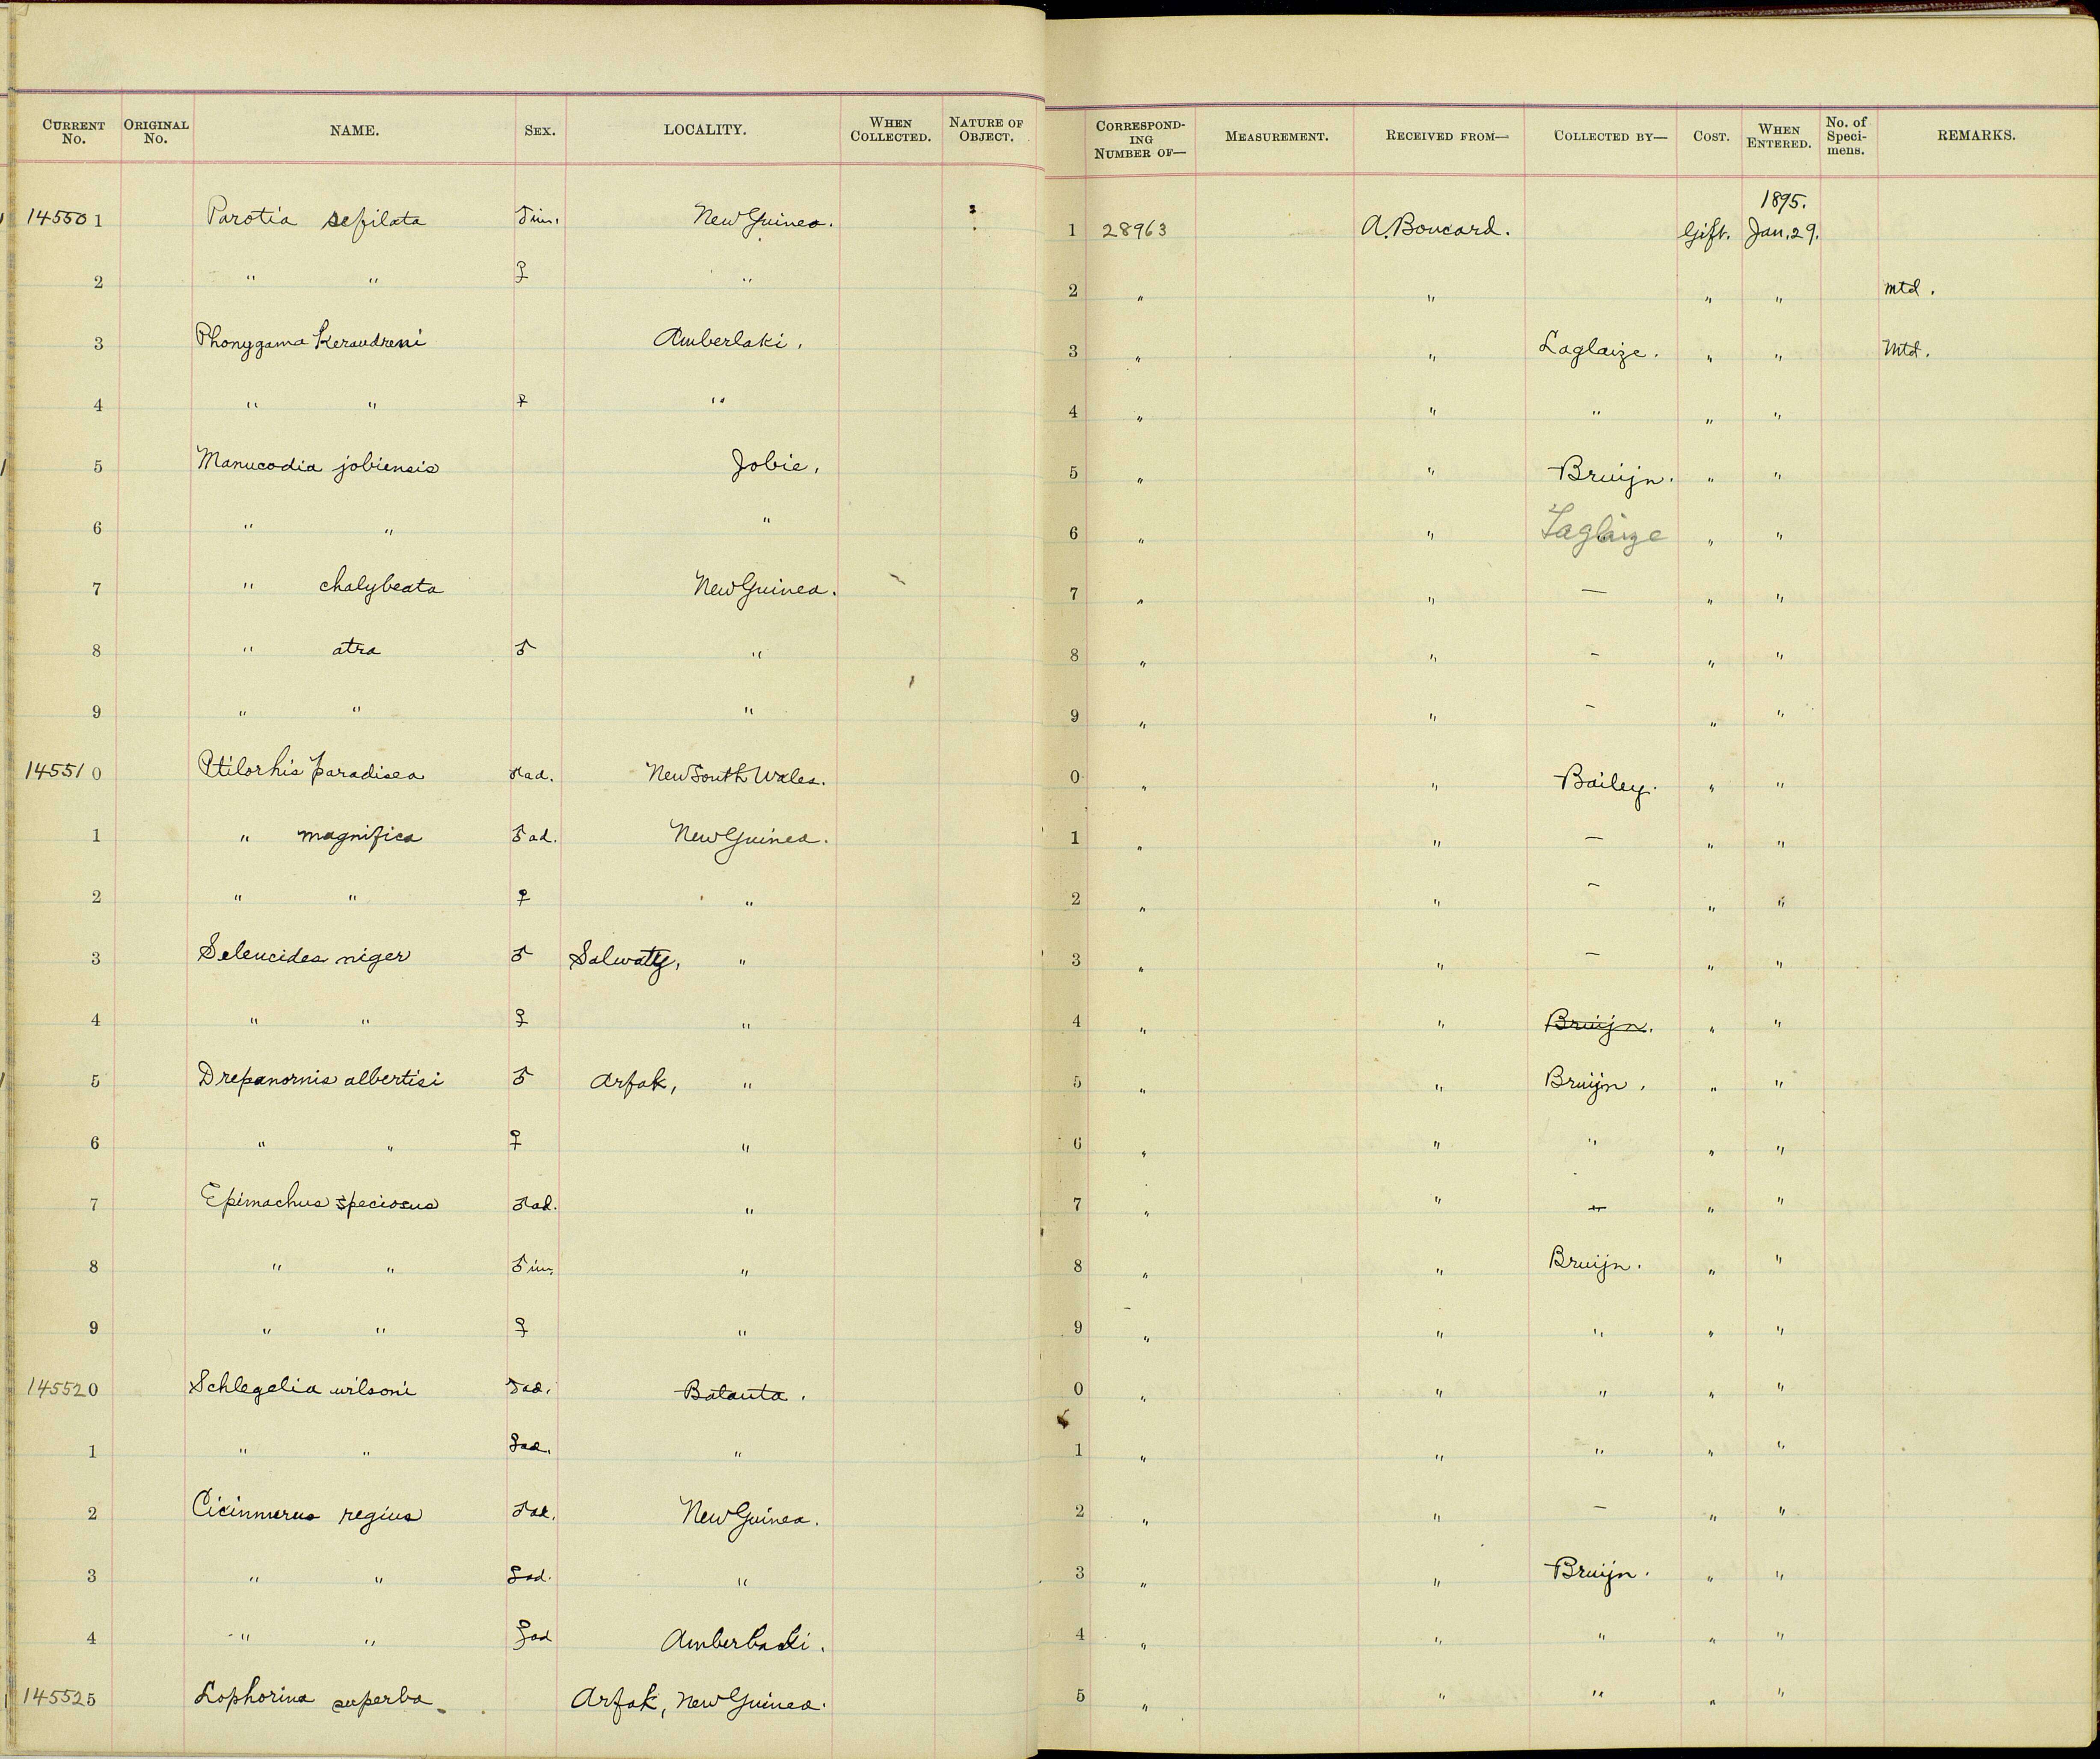 CURRENT No. ORIGINAL No. NAME. SEX. LOCALITY. WHEN COLLECTED. NATURE OF OBJECT. CORRESPONDING NUMBER OF— MEASUREMENT. RECEIVED FROM— COLLECTED BY— COST. WHEN ENTERED. No. of Specimens. REMARKS.
1895.
145501 Parotia sefilata ♂ im. New Guinea. 1 28963 A. Boucard. Gift. Jan. 29.
2 " " ♀ " 2 " " " " Mtd.
3 Phonygama Keraudreni Amberlaki. 3 " " Laglaize. " " Mtd.
4 " " ♀ " 4 " " " " "
5 Manucodia jobiensis Jobie. 5 " " Bruijn. " "
6 " " " 6 " " Laglaize " "
7 " chalybeata New Guinea. 7 " " — " "
8 " atra ♂ " 8 " " – " "
9 " " " 9 " " – " "
145510 Ptilorhis paradisea ♂ ad. New South Wales. 0 " " Bailey. " "
1 " magnifica ♂ ad. New Guinea. 1 " " — " "
2 " " ♀ " 2 " " – " "
3 Seleucides niger ♂ Salwatty, " 3 " " — " "
4 " " ♀ " 4 " " Bruijn. " "
5 Drepanornis albertisi ♂ Arfak, " 5 " " Bruijn. " "
6 " " ♀ " 6 " " " " "
7 Epimachus speciosus ♂ ad. " 7 " " — " "
8 " " ♂ im. " 8 " " Bruijn. " "
9 " " ♀ " 9 " " " " "
145520 Schlegelia wilsoni ♂ ad. Batanta. 0 " " " " "
1 " " ♀ ad. " 1 " " " " "
2 Cicinnurus regius ♂ ad. New Guinea. 2 " " – " "
3 " " ♀ ad. " 3 " " Bruijn. " "
4 " " ♀ ad Amberbaki. 4 " " " " "
145525 Lophorina superba. Arfak, New Guinea. 5 " " " " "